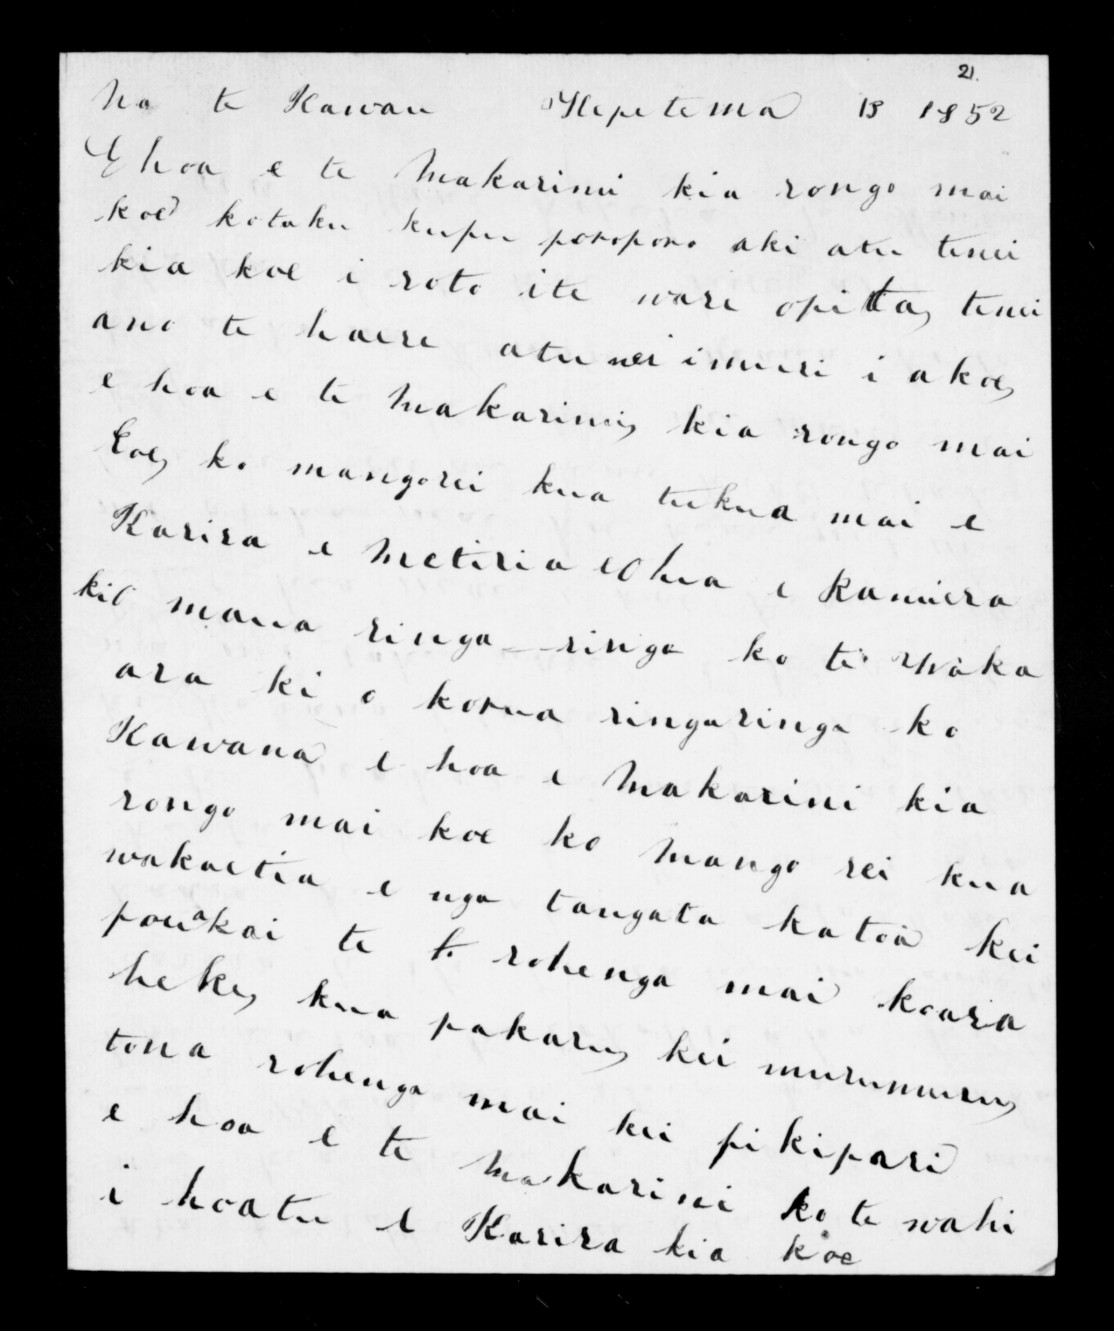 21.
Na te Kawau Hepetema 13 1852
E hoa e te Makarini kia rongo mai
koe kotaku kupu poroporo aki atu tenei
kia koe i roto ite ware opitta, tenei
ano te haere atu nei imuri i akoe,
e hoa e te Makarini, kia rongo mai
koe, ko mangorei kua tukua mai e
Karira e Metiria e Ohua e Kamiera
kiō maua ringa-ringa ko te Waka
ara ki o korua ringaringa ko
Kawana e hoa e Makarini kia
rongo mai koe ko Mango rei kua
wakaetia e nga tangata katoa kei
pouakai te t. rohenga mai koara
heke, kua pakaru, kei murumuru,
tona rohenga mai kei pikipari
e hoa e te Makarini ko te wahi
i hoatu e Karira kia koe